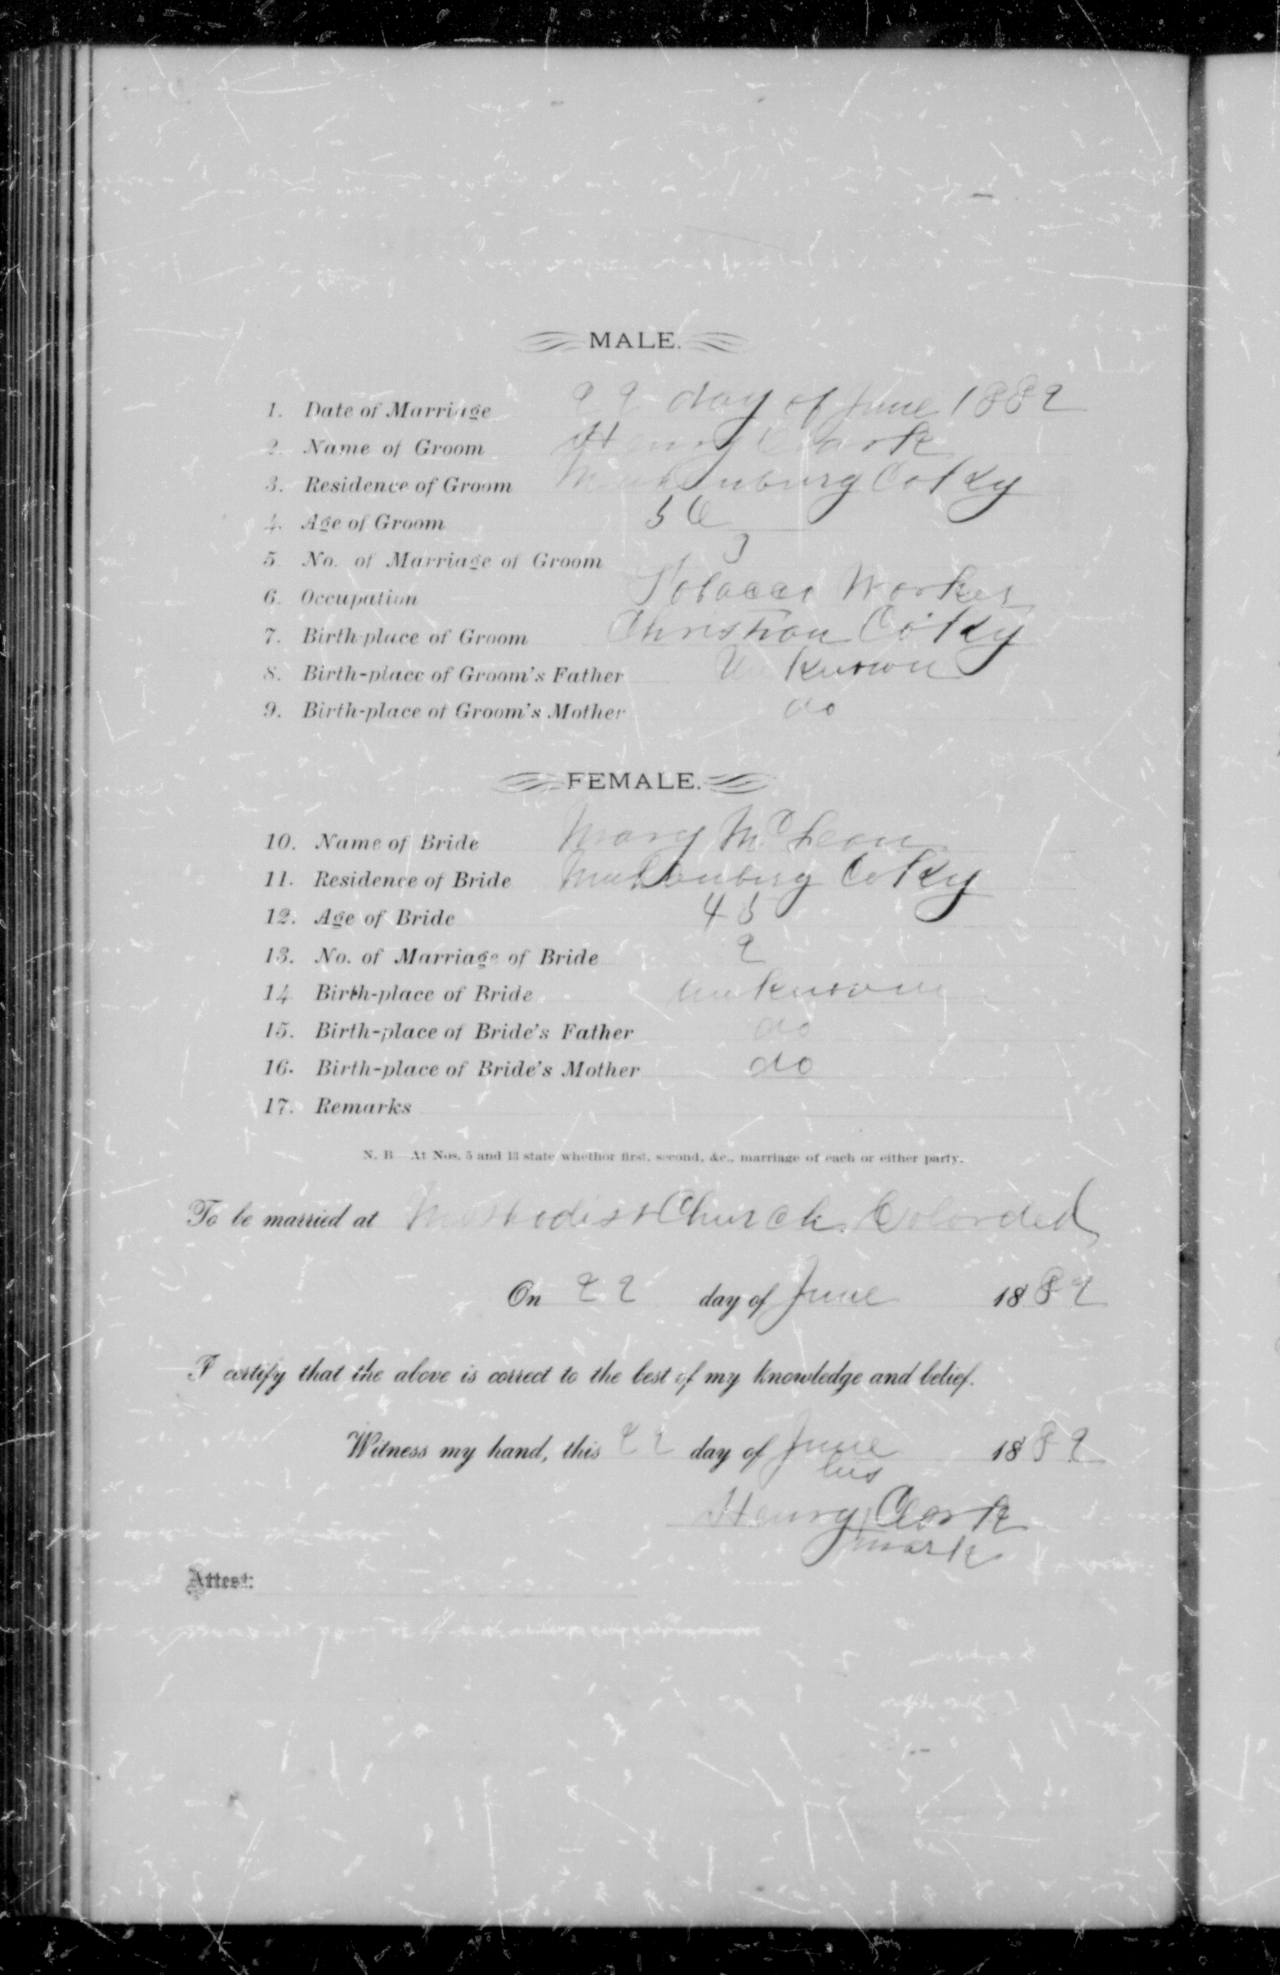 MALE.
1. Date of Marriage 22 day of June 1882
2. Name of Groom Henry Clark
3. Residence of Groom Muhlenburg Co Ky
4. Age of Groom 56
5. No. of Marriage of Groom 3
6. Occupation Tobacco Worker
7. Birth-place of Groom Christian Co Ky
8. Birth-place of Groom's Father Unknown
9. Birth-place of Groom's Mother do
FEMALE.
10. Name of Bride Mary McLean
11. Residence of Bride Muhlenburg Co Ky
12. Age of Bride 45
13. No. of Marriage of Bride 2
14. Birth-place of Bride unknown
15. Birth-place of Bride's Father do
16. Birth-place of Bride's Mother do
17. Remarks
N. B.—At Nos. 5 and 13 state whethor first, second, &c., marriage of each or either party.
To be married at Methodist Church Colorded
On 22 day of June 1882
I certify that the above is correct to the best of my knowledge and belief.
Witness my hand, this 22 day of June 1882
his
Henry Clark
mark
Attest: